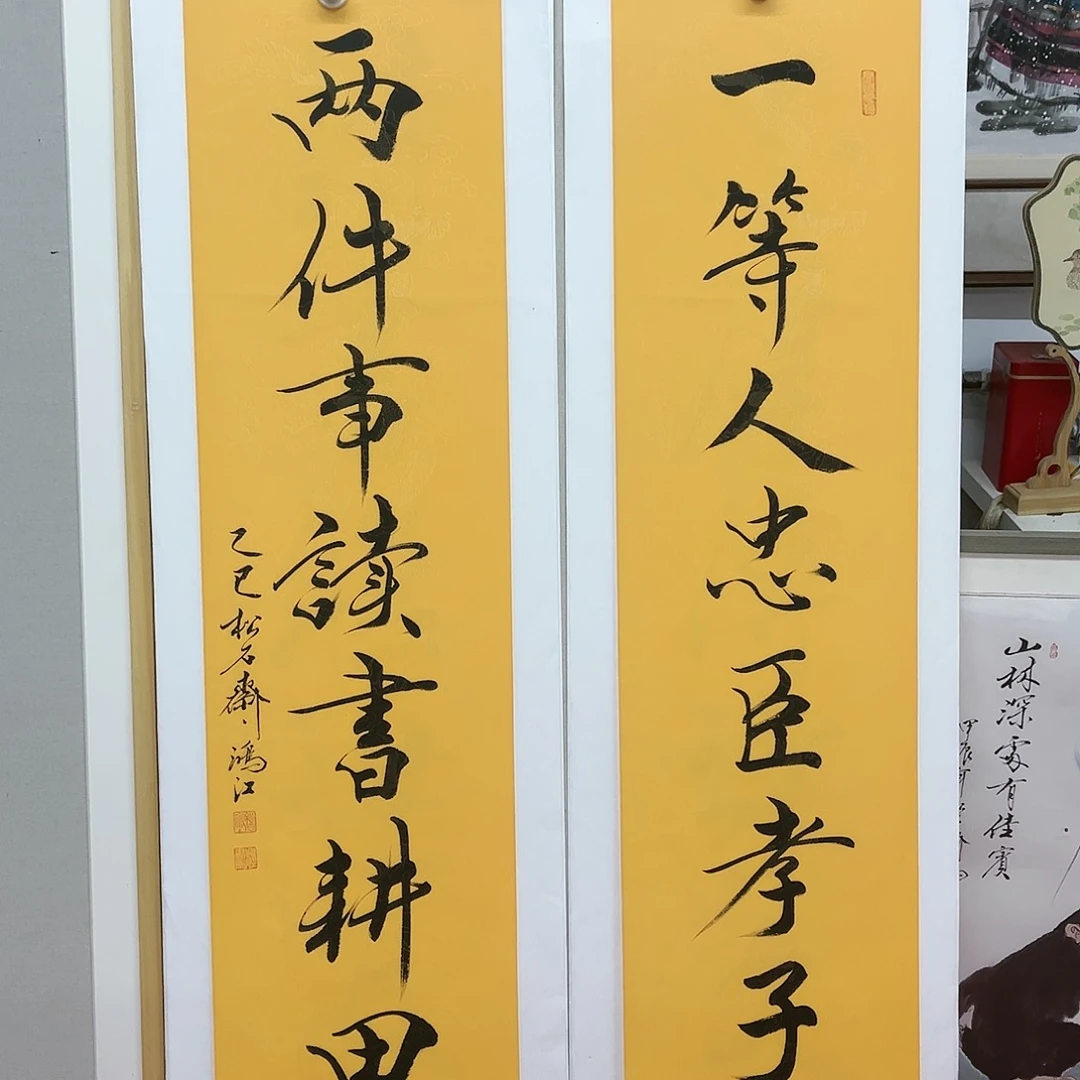 一等人忠臣孝子
两件事讀書耕田
乙巳松石齋鴻江
山林深處有佳賓